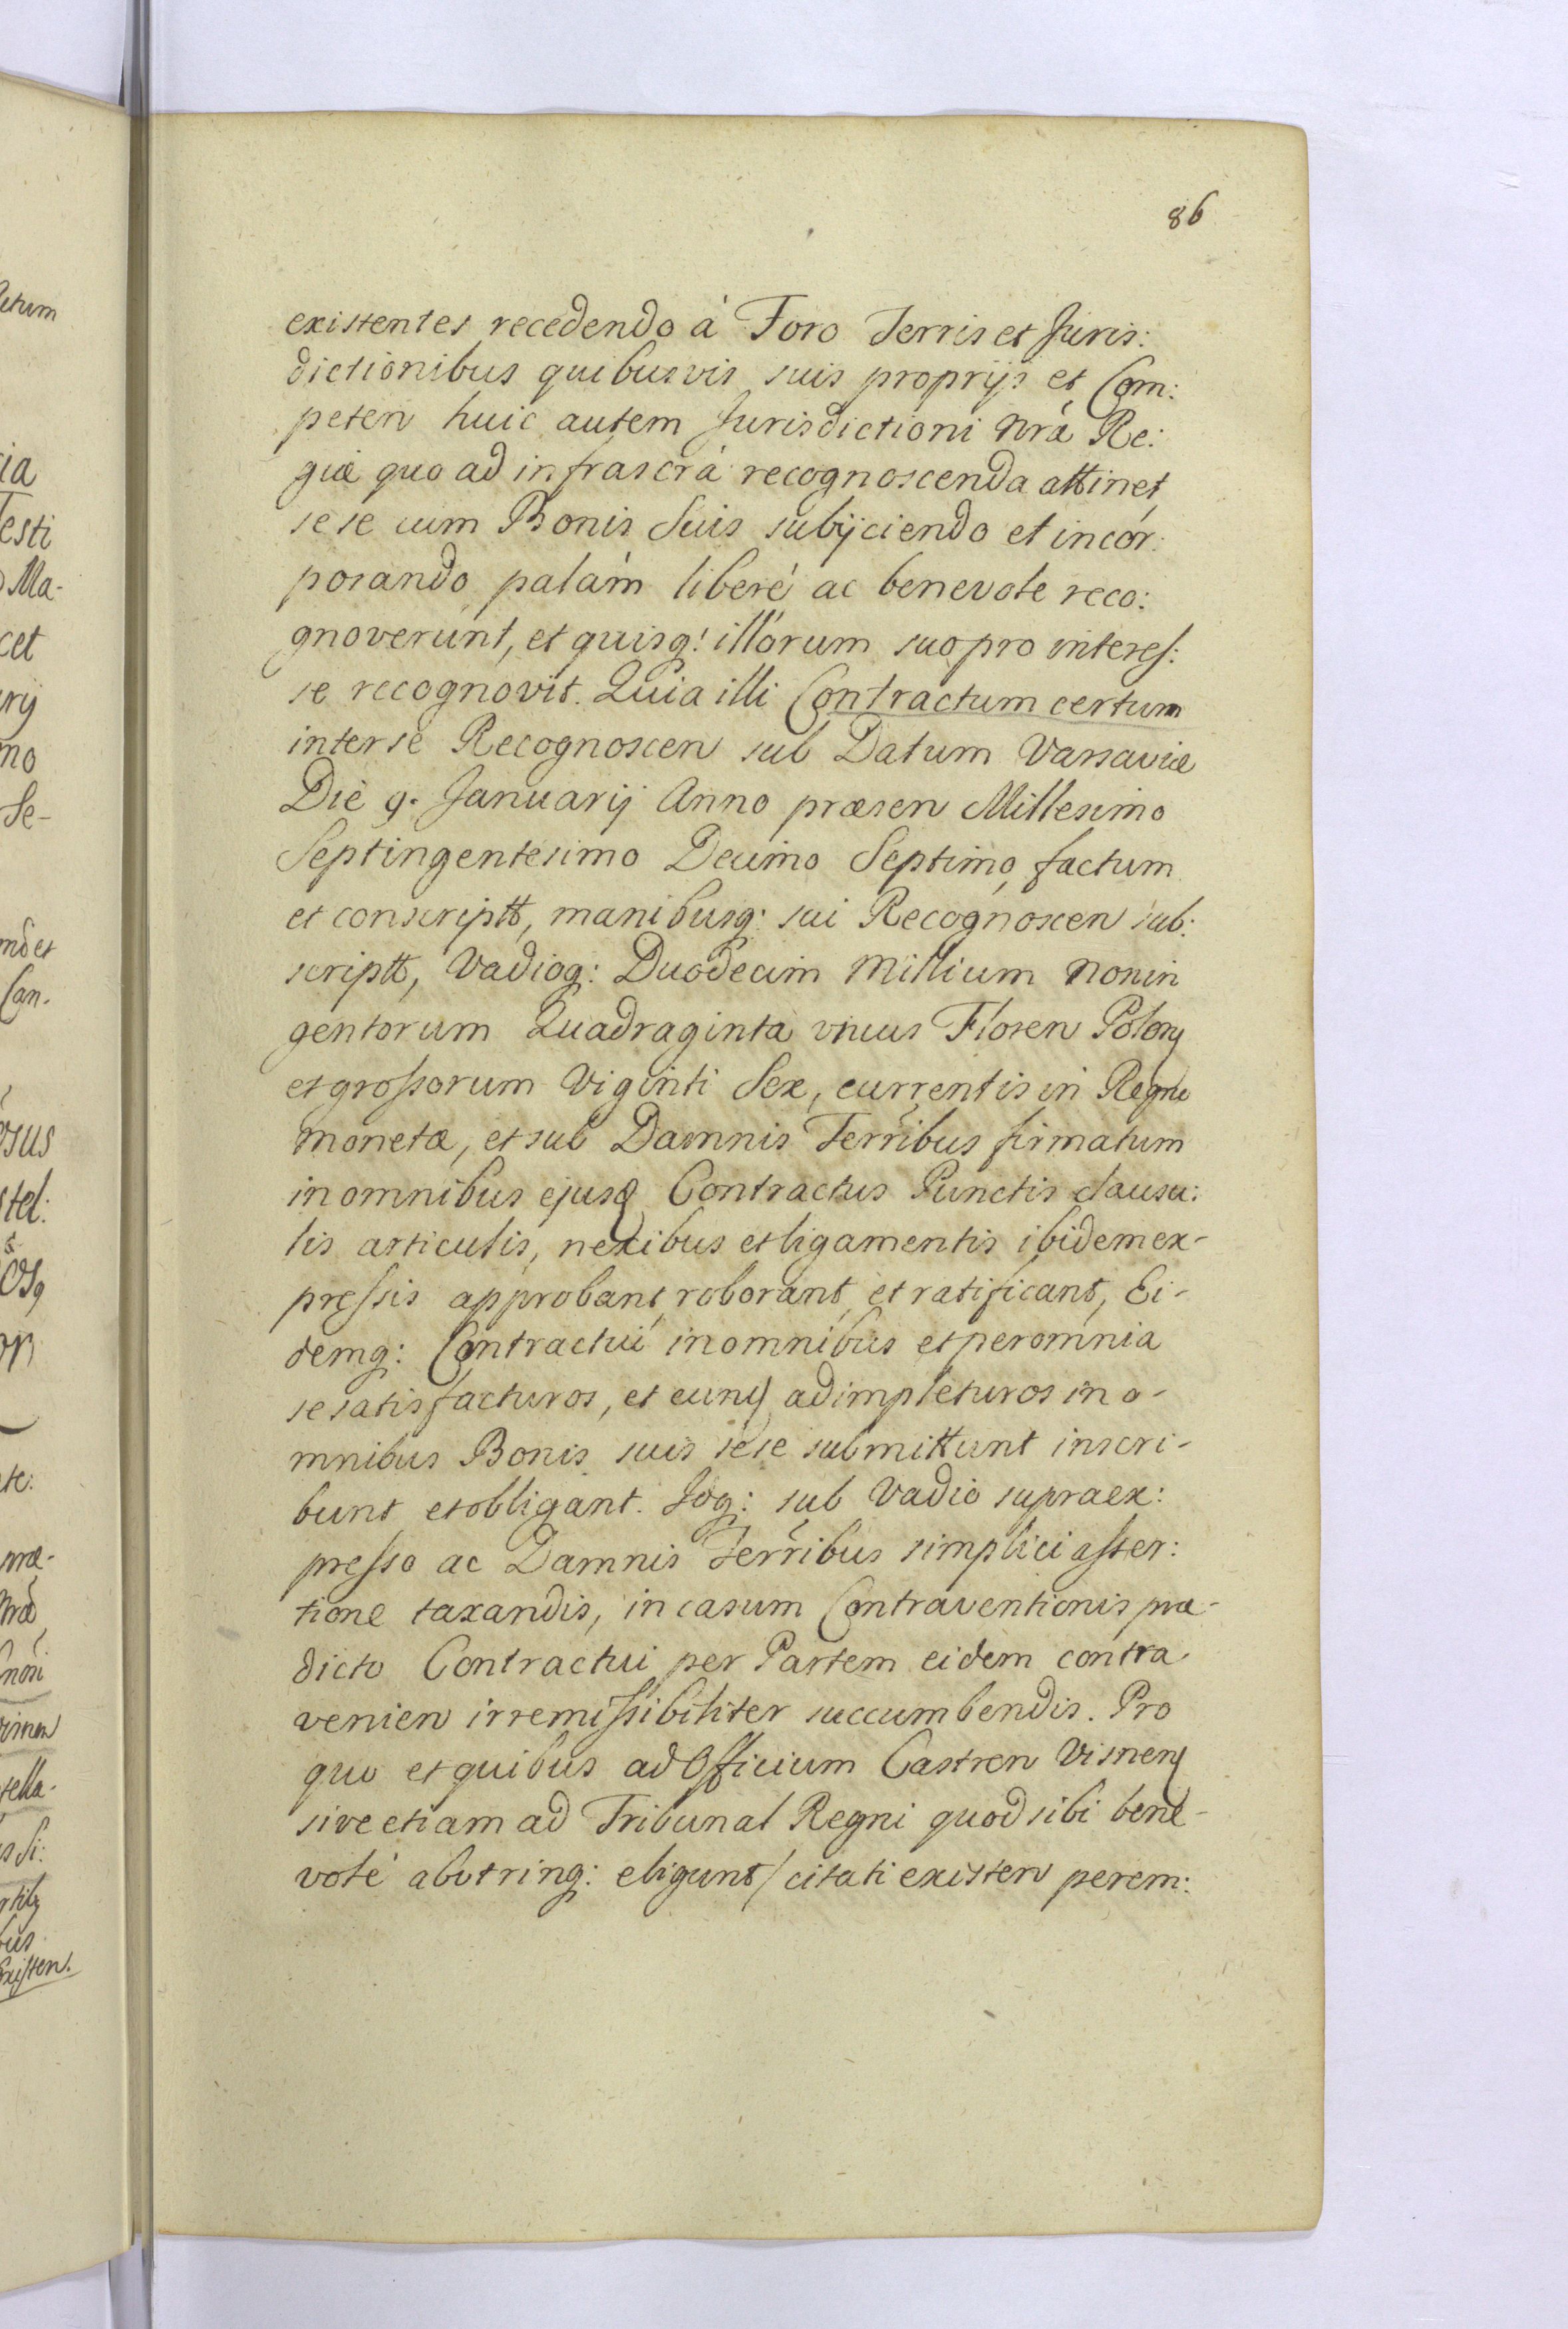 86
existentes recedendo à Foro Terris et Juris:
dictionibus quibusvis suis proprijs et Com:
peten huic autem Jurisdictioni nrá Re:
giæ quo ad infrascrá recognoscenda attinet,
sese cum Bonis Suis subijciendo et incor:
porando palám liberé ac benevole reco:
gnoverunt, et quisq: illorum suo pro interes:
se recognovit. Quia illi Contractum certum
inter se Recognoscen sub Datum Varsaviæ
Die 9. Januarij Anno præsen Millesimo
Septingentesimo Decimo Septimo, factum
et conscriptt, manibusq: sui Recognoscen sub:
scriptt, Vadioq: Duodecim Millium Nonin
gentorum Quadraginta unius Floren Polon
et grossorum Viginti Sex, currentis in Regno
monetæ, et sub Damnis Terribus firmatum
in omnibus ejusd Contractus Punctis clausu:
lis articulis, nexibus et ligamentis ibidem ex-
pressis approbant, roborant, et ratificant, Ei-
demq: Contractui in omnibus et per omnia
se satisfacturos, et eund adimpleturos in o-
mnibus Bonis suis sese submittunt inscri-
bunt et obligant. Idq: sub Vadio supraex:
presso ac Damnis Terribus simplici asser:
tione taxandis, in casum Contraventionis præ-
dicto Contractui per Partem eidem contra
venien irremissibiliter succumbendis. Pro
quo et quibus ad Officium Castren Visnen
sive etiam ad Tribunal Regni quod sibi bene-
volé abutrinq: eligunt / citati existen perem: